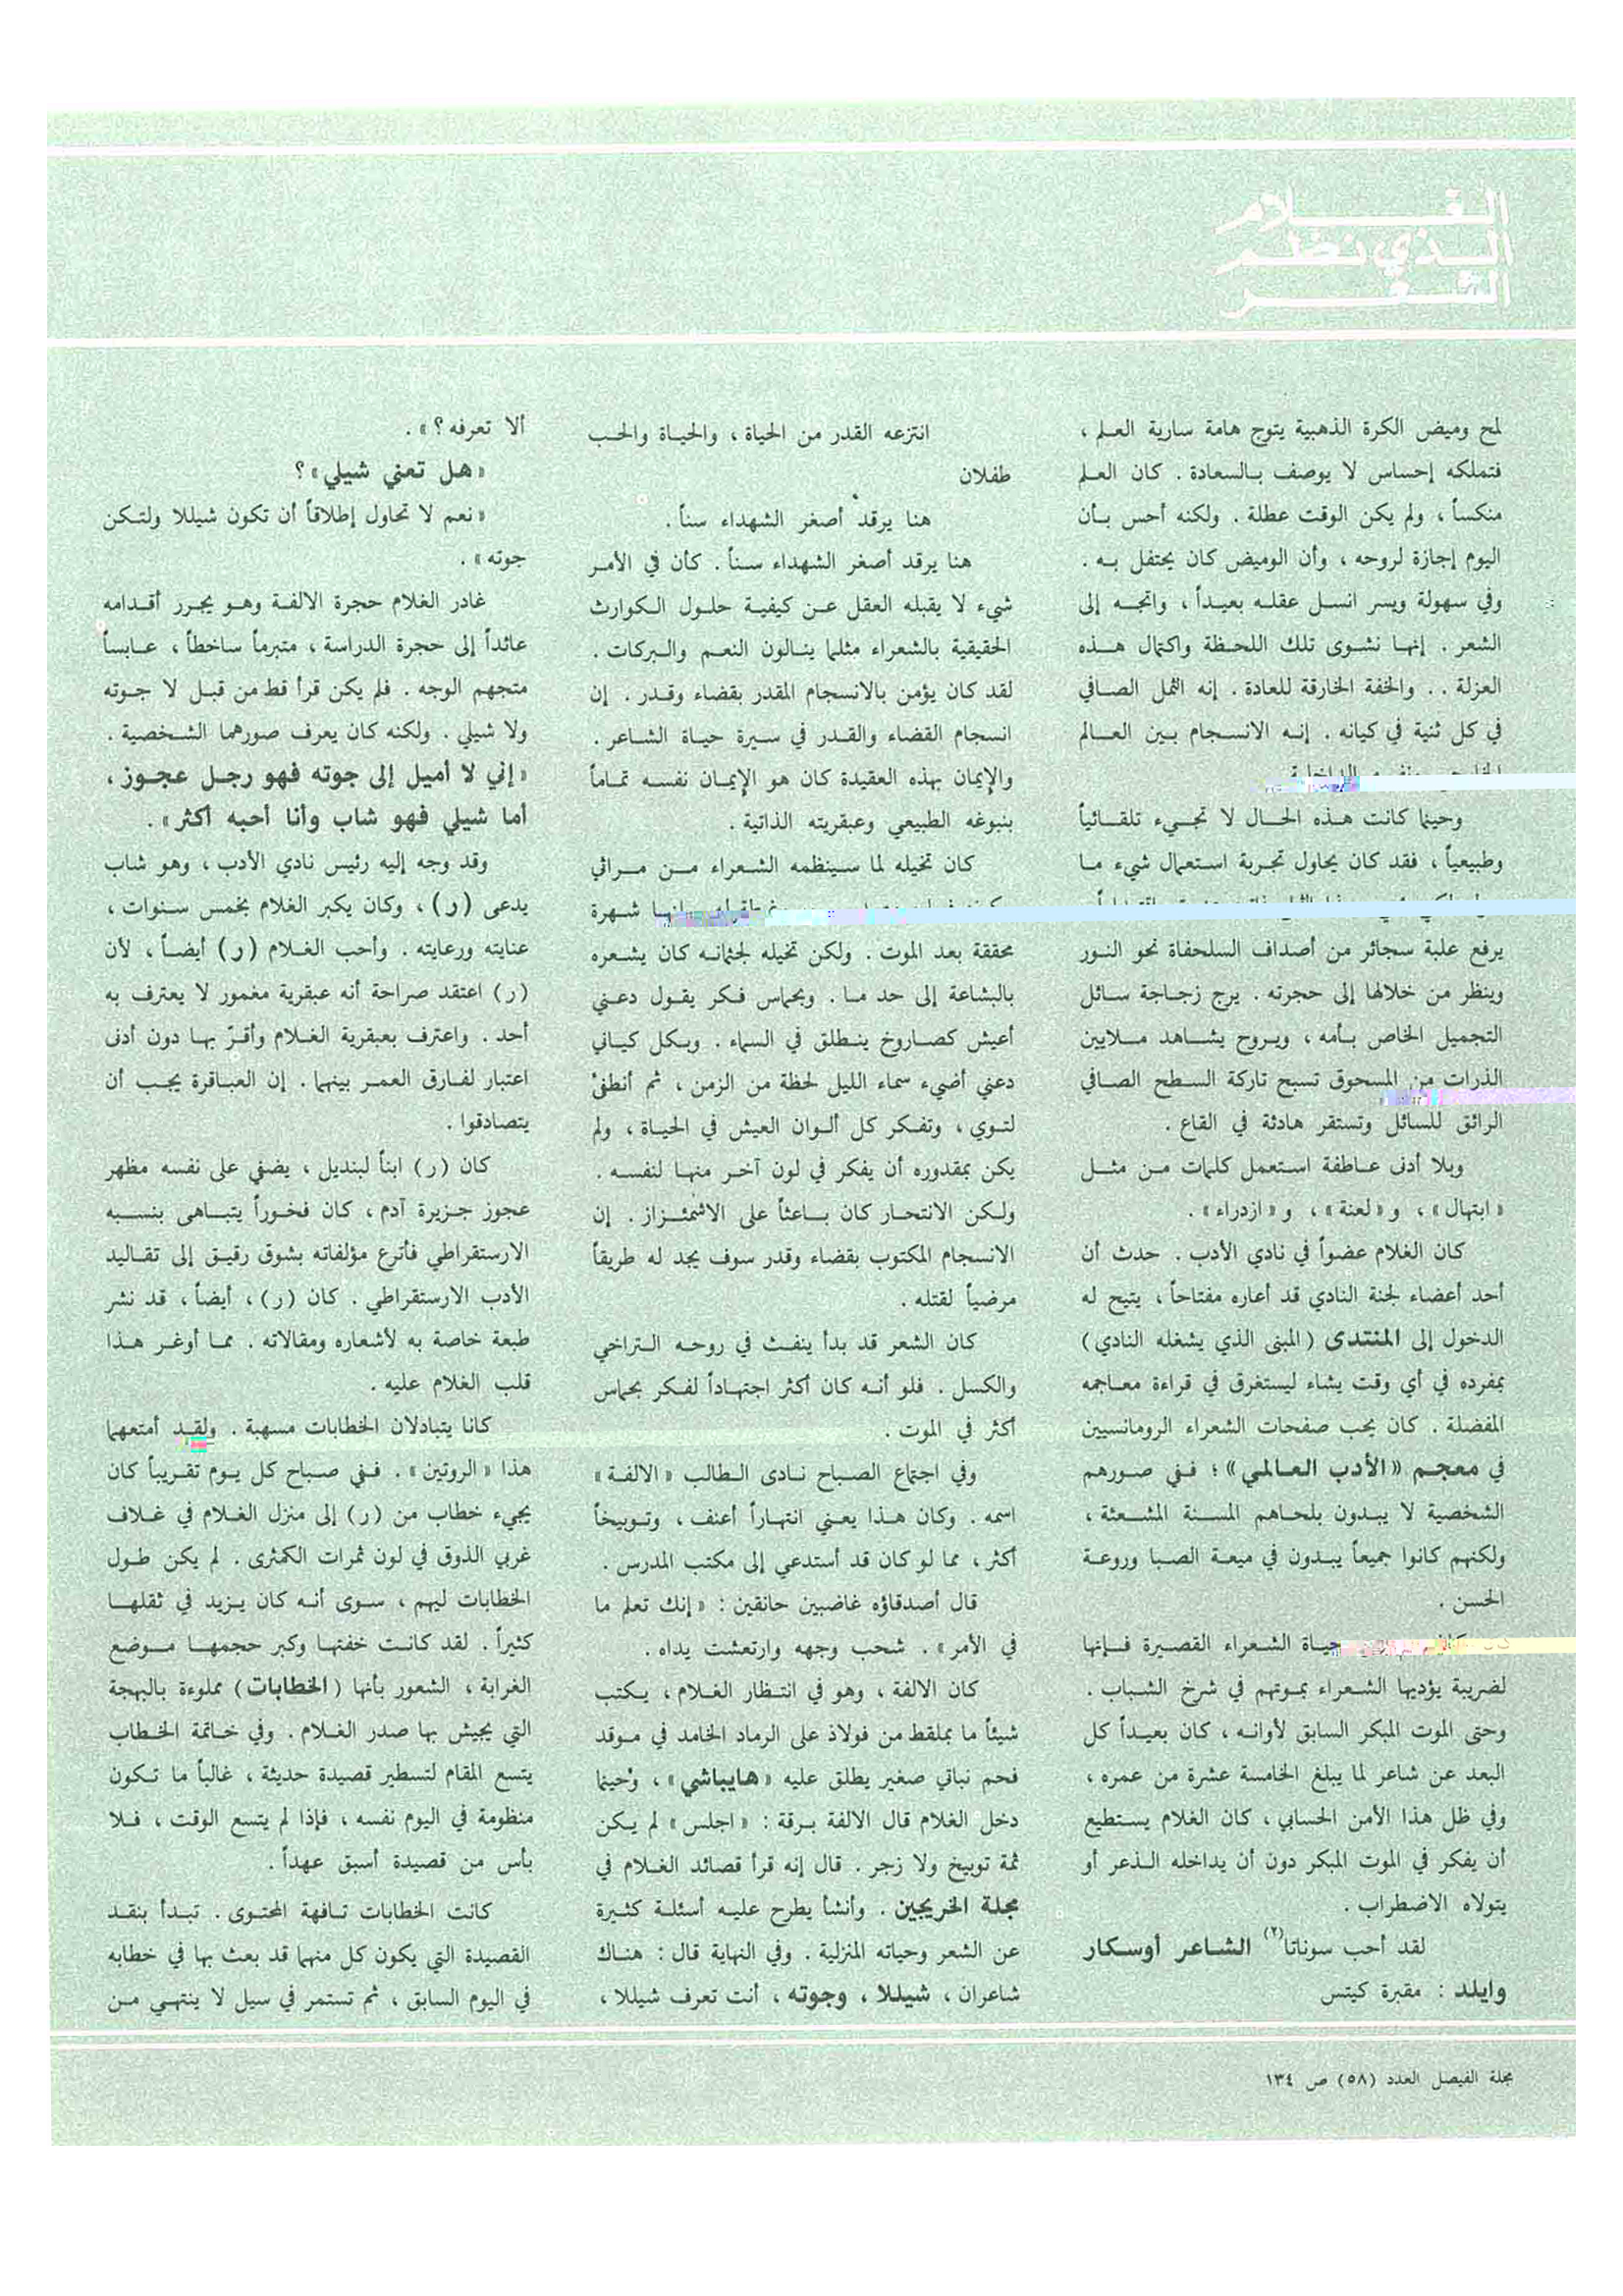 الغـــــلام
الـــذي نظـــم
الشعـــــر
لمح وميض الكرة الذهبية يتوج هامة سارية العلم ،
فتملكه إحساس لا يوصف بالسعادة . كان العلم
منكساً ، ولم يكن الوقت عطلة . ولكنه أحس بأن
اليوم إجازة لروحه ، وأن الوميض كان يحتفل به .
وفي سهولة ويسر انسل عقله بعيداً ، واتجه إلى
الشعر . إنها نشوى تلك اللحظة واكتمال هذه
العزلة . . والخفة الخارقة للعادة . إنه الثمل الصافي
في كل ثنية في كيانه . إنه الانسجام بين العالم
وحينما كانت هذه الحال لا تجيء تلقائياً
وطبيعياً ، فقد كان يحاول تجربة استعمال شيء ما
يرفع علبة سجائر من أصداف السلحفاة نحو النور
وينظر من خلالها إلى حجرته . يرج زجاجة سائل
التجميل الخاص بأمه ، ويروح يشاهد ملايين
الذرات من المسحوق تسبح تاركة السطح الصافي
الرائق للسائل وتستقر هادئة في القاع .
وبلا أدنى عاطفة استعمل كلمات من مثل
« ابتهال » ، و « لعنة » ، و « ازدراء » .
كان الغلام عضواً في نادي الأدب . حدث أن
أحد أعضاء لجنة النادي قد أعاره مفتاحاً ، يتيح له
الدخول إلى المنتدى ( المبنى الذي يشغله النادي )
بمفرده في أي وقت يشاء ليستغرق في قراءة معاجمه
المفضلة . كان يحب صفحات الشعراء الرومانسيين
في معجم « الأدب العالمي » ؛ ففي صورهم
الشخصية لا يبدون بلحاهم المسنة المشعثة ،
ولكنهم كانوا جميعاً يبدون في ميعة الصبا وروعة
الحسن .
حياة الشعراء القصيرة فإنها
لضريبة يؤديها الشعراء بموتهم في شرخ الشباب .
وحتى الموت المبكر السابق لأوانه ، كان بعيداً كل
البعد عن شاعر لما يبلغ الخامسة عشرة من عمره ،
وفي ظل هذا الأمن الحسابي ، كان الغلام يستطيع
أن يفكر في الموت المبكر دون أن يداخله الذعر أو
يتولاه الاضطراب .
لقد أحب سوناتا(٢) الشاعر أوسكار
وايلد : مقبرة كيتس
انتزعه القدر من الحياة ، والحياة والحب
طفلان
هنا يرقد أصغر الشهداء سناً .
هنا يرقد أصغر الشهداء سناً . كأن في الأمر
شيء لا يقبله العقل عن كيفية حلول الكوارث
الحقيقية بالشعراء مثلما ينالون النعم والبركات .
لقد كان يؤمن بالانسجام المقدر بقضاء وقدر . إن
انسجام القضاء والقدر في سيرة حياة الشاعر .
والإيمان بهذه العقيدة كان هو الإيمان نفسه تماماً
بنبوغه الطبيعي وعبقريته الذاتية .
كان تخيله لما سينظمه الشعراء من مراثي
شهرة
محققة بعد الموت . ولكن تخيله لجثمانه كان يشعره
بالبشاعة إلى حد ما . وبحماس فكر يقول دعني
أعيش كصاروخ ينطلق في السماء . وبكل كياني
دعني أضيء سماء الليل لحظة من الزمن ، ثم أنطفئ
لتوي ، وتفكر كل ألوان العيش في الحياة ، ولم
يكن بمقدوره أن يفكر في لون آخر منها لنفسه .
ولكن الانتحار كان باعثاً على الاشمئزاز . إن
الانسجام المكتوب بقضاء وقدر سوف يجد له طريقاً
مرضياً لقتله .
كان الشعر قد بدأ ينفث في روحه التراخي
والكسل . فلو أنه كان أكثر اجتهاداً لفكر بحماس
أكثر في الموت .
وفي اجتماع الصباح نادى الطالب « الالفة »
اسمه . وكان هذا يعني انتهاراً أعنف ، وتوبيخاً
أكثر ، مما لو كان قد أستدعي إلى مكتب المدرس .
قال أصدقاؤه غاضبين حانقين : « إنك تعلم ما
في الأمر » . شحب وجهه وارتعشت يداه .
كان الالفة ، وهو في انتظار الغلام ، يكتب
شيئاً ما بملقط من فولاذ على الرماد الخامد في موقد
فحم نباتي صغير يطلق عليه « هايباشي » ، وحينما
دخل الغلام قال الالفة برقة : « اجلس » لم يكن
ثمة توبيخ ولا زجر . قال إنه قرأ قصائد الغلام في
مجلة الخريجين . وأنشأ يطرح عليه أسئلة كثيرة
عن الشعر وحياته المنزلية . وفي النهاية قال : هناك
شاعران ، شيللا ، وجوته ، أنت تعرف شيللا ،
ألا تعرفه ؟ » .
« هل تعني شيلي » ؟
« نعم لا تحاول إطلاقاً أن تكون شيللا ولتكن
جوته » .
غادر الغلام حجرة الالفة وهو يجرر أقدامه
عائداً إلى حجرة الدراسة ، متبرماً ساخطاً ، عابساً
متجهم الوجه . فلم يكن قرأ قط من قبل لا جوته
ولا شيلي . ولكنه كان يعرف صورهما الشخصية .
« إني لا أميل إلى جوته فهو رجل عجوز ،
أما شيلي فهو شاب وأنا أحبه أكثر » .
وقد وجه إليه رئيس نادي الأدب ، وهو شاب
يدعى ( ر ) ، وكان يكبر الغلام بخمس سنوات ،
عنايته ورعايته . وأحب الغلام ( ر ) أيضاً ، لأن
( ر ) اعتقد صراحة أنه عبقرية مغمور لا يعترف به
أحد . واعترف بعبقرية الغلام وأقرّ بها دون أدنى
اعتبار لفارق العمر بينهما . إن العباقرة يجب أن
يتصادقوا .
كان ( ر ) ابناً لبنديل ، يضفي على نفسه مظهر
عجوز جزيرة آدم ، كان فخوراً يتباهى بنسبه
الارستقراطي فأترع مؤلفاته بشوق رقيق إلى تقاليد
الأدب الارستقراطي . كان ( ر ) ، أيضاً ، قد نشر
طبعة خاصة به لأشعاره ومقالاته . مما أوغر هذا
قلب الغلام عليه .
كانا يتبادلان الخطابات مسهبة . ولقد أمتعهما
هذا « الروتين » . ففي صباح كل يوم تقريباً كان
يجيء خطاب من ( ر ) إلى منزل الغلام في غلاف
غربي الذوق في لون ثمرات الكمثرى . لم يكن طول
الخطابات ليهم ، سوى أنه كان يزيد في ثقلها
كثيراً . لقد كانت خفتها وكبر حجمها موضع
الغرابة ، الشعور بأنها ( الخطابات ) مملوءة بالبهجة
التي يجيش بها صدر الغلام . وفي خاتمة الخطاب
يتسع المقام لتسطير قصيدة حديثة ، غالباً ما تكون
منظومة في اليوم نفسه ، فإذا لم يتسع الوقت ، فلا
بأس من قصيدة أسبق عهداً .
كانت الخطابات تافهة المحتوى . تبدأ بنقد
القصيدة التي يكون كل منهما قد بعث بها في خطابه
في اليوم السابق ، ثم تستمر في سيل لا ينتهي من
مجلة الفيصل العدد ( ٥٨ ) ص ١٣٤